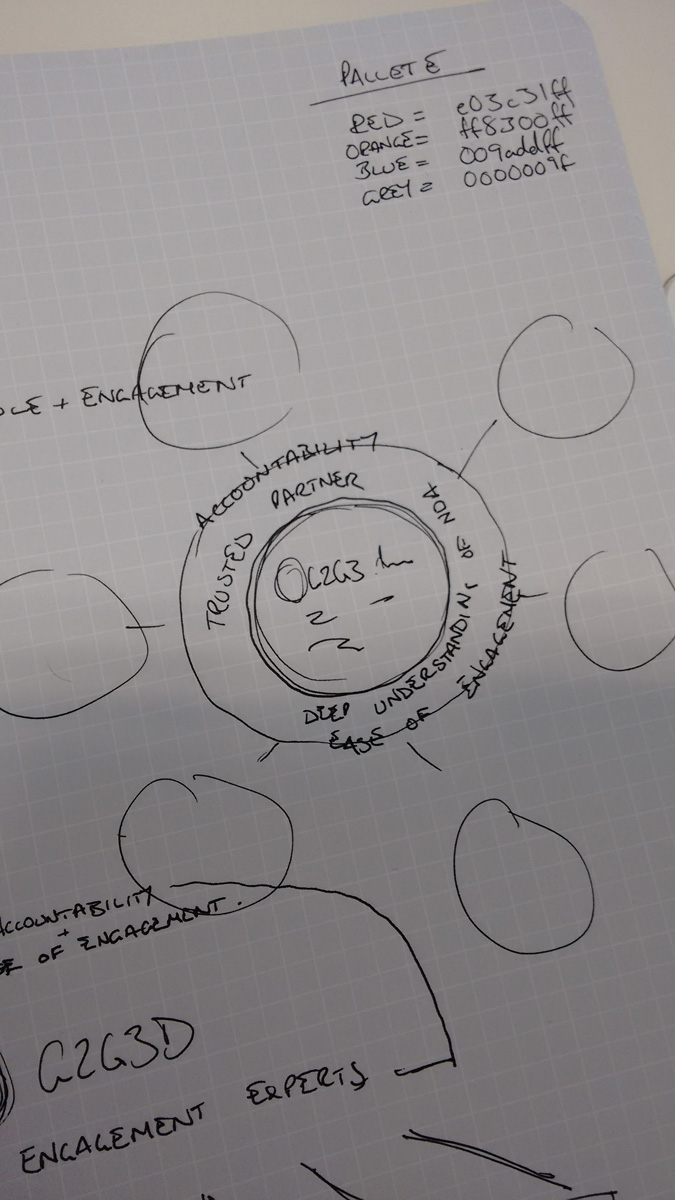 PALLETE
RED = e03c31ff
ORANGE= ff8300ff
BLUE = 009addff
GREY = 0000009f
+ ENGAGEMENT
ACCOUNTABILITY
TRUSTED PARTNER
DEEP UNDERSTANDING OF NDA
EASE OF ENGAGEMENT
G2G3
ACCOUNTABILITY
+
OF ENGAGEMENT.
G2G3D
ENGAGEMENT EXPERTS